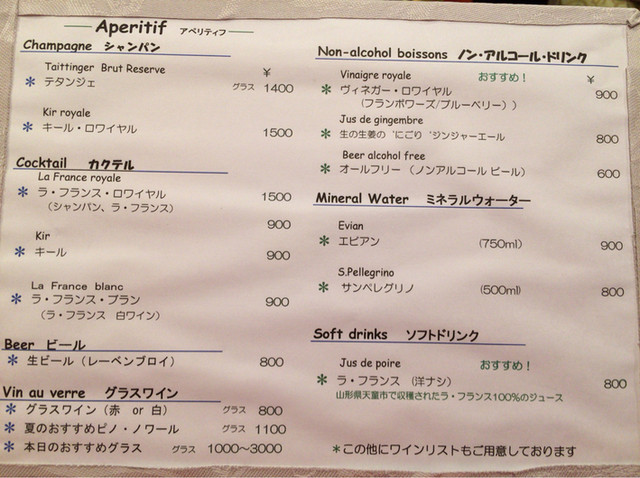 Aperitif アペリティフ
Champagne シャンパン
Taittinger Brut Reserve ¥
* テタンジェ グラス 1400
Kir royale
* キール・ロワイヤル 1500
Cocktail カクテル
La France royale
* ラ・フランス・ロワイヤル 1500
(シャンパン、ラ・フランス)
900
Kir
* キール 900
La France blanc
* ラ・フランス・ブラン 900
(ラ・フランス 白ワイン)
Beer ビール
* 生ビール (レーベンブロイ) 800
Vin au verre グラスワイン
* グラスワイン (赤 or 白) グラス 800
* 夏のおすすめピノ・ノワール グラス 1100
* 本日のおすすめグラス グラス 1000〜3000
Non-alcohol boissons ノン・アルコール・ドリンク
Vinaigre royale おすすめ! ¥
* ヴィネガー・ロワイヤル 900
(フランボワーズ/ブルーベリー))
Jus de gingembre
* 生の生姜の゛にごり゛ジンジャーエール 800
Beer alcohol free
* オールフリー (ノンアルコール ビール) 600
Mineral Water ミネラルウォーター
Evian
* エビアン (750ml) 900
S.Pellegrino
* サンペレグリノ (500ml) 800
Soft drinks ソフトドリンク
Jus de poire おすすめ!
* ラ・フランス (洋ナシ) 800
山形県天童市で収穫されたラ・フランス100%のジュース
*この他にワインリストもご用意しております